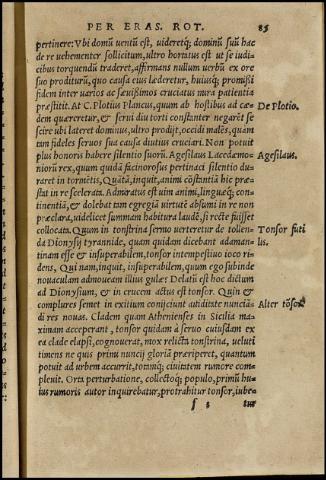 PER ERAS. ROT. 85
pertinere: Vbi domū uentū est, uideretq́; dominū suū hac
de re uehementer sollicitum, ultro hortatus est ut se iudi-
cibus torquendū traderet, affirmans nullum uerbū ex ore
suo proditurū, quo causa eius læderetur, huiusq́; promißi
fidem inter uarios ac sæuißimos cruciatus mira patientia
præstitit. At C. Plotius Plancus, quum ab hostibus ad cæ-
De Plotio.
dem quæreretur, & serui diu torti constanter negarēt se
scire ubi lateret dominus, ultro prodijt, occidi malēs, quàm
tum fideles seruos sua causa diutius cruciari. Non potuit
plus honoris habere silentio suorū. Agesilaus Lacedæmo-
Agesilaus.
niorū rex, quum quidā facinorosus pertinaci silentio du-
raret in tormētis, Quātā, inquit, animi cōstantiā hic præ-
stat in re scelerata. Admiratus est uim animi, linguæq́; con-
tinentiā, & dolebat tum egregiā uirtutē absumi in re non
præclara, uidelicet summam habitura laudē, si rectè fuisset
collocata. Quum in tonstrina sermo uerteretur de tollen-
Tonsor futi
da Dionysij tyrannide, quam quidam dicebant adaman-
lis.
tinam esse & insuperabilem, tonsor intempestiuo ioco ri-
dens, Qui nam, inquit, insuperabilem, quum ego subinde
nouaculam admoueam illius gulæ? Delatū est hoc dictum
ad Dionysium, & in crucem actus est tonsor. Quin &
complures semet in exitium conijciunt auiditate nunciā-
Alter tōsor.
di res nouas. Cladem quam Athenienses in Sicilia ma-
ximam acceperant, tonsor quidam à seruo cuiusdam ex
ea clade elapsi, cognouerat, mox relicta tonstrina, ueluti
timens ne quis primus nuncij gloriā præriperet, quantum
potuit ad urbem accurrit, totamq́; ciuitatem rumore com-
pleuit. Orta perturbatione, collectoq́; populo, primū hu-
ius rumoris autor inquirebatur, protrahitur tonsor, iube-
f 3 tur